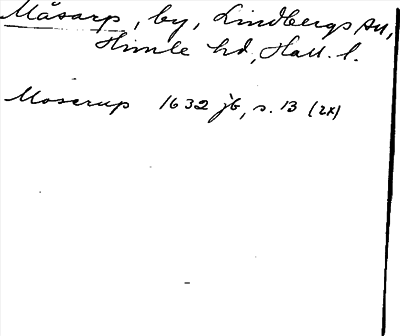 Måsarp, by, Lindbergs sn,
Himle hd, Hall. l.
Moserup 1632 jb, s. 13 (2x)